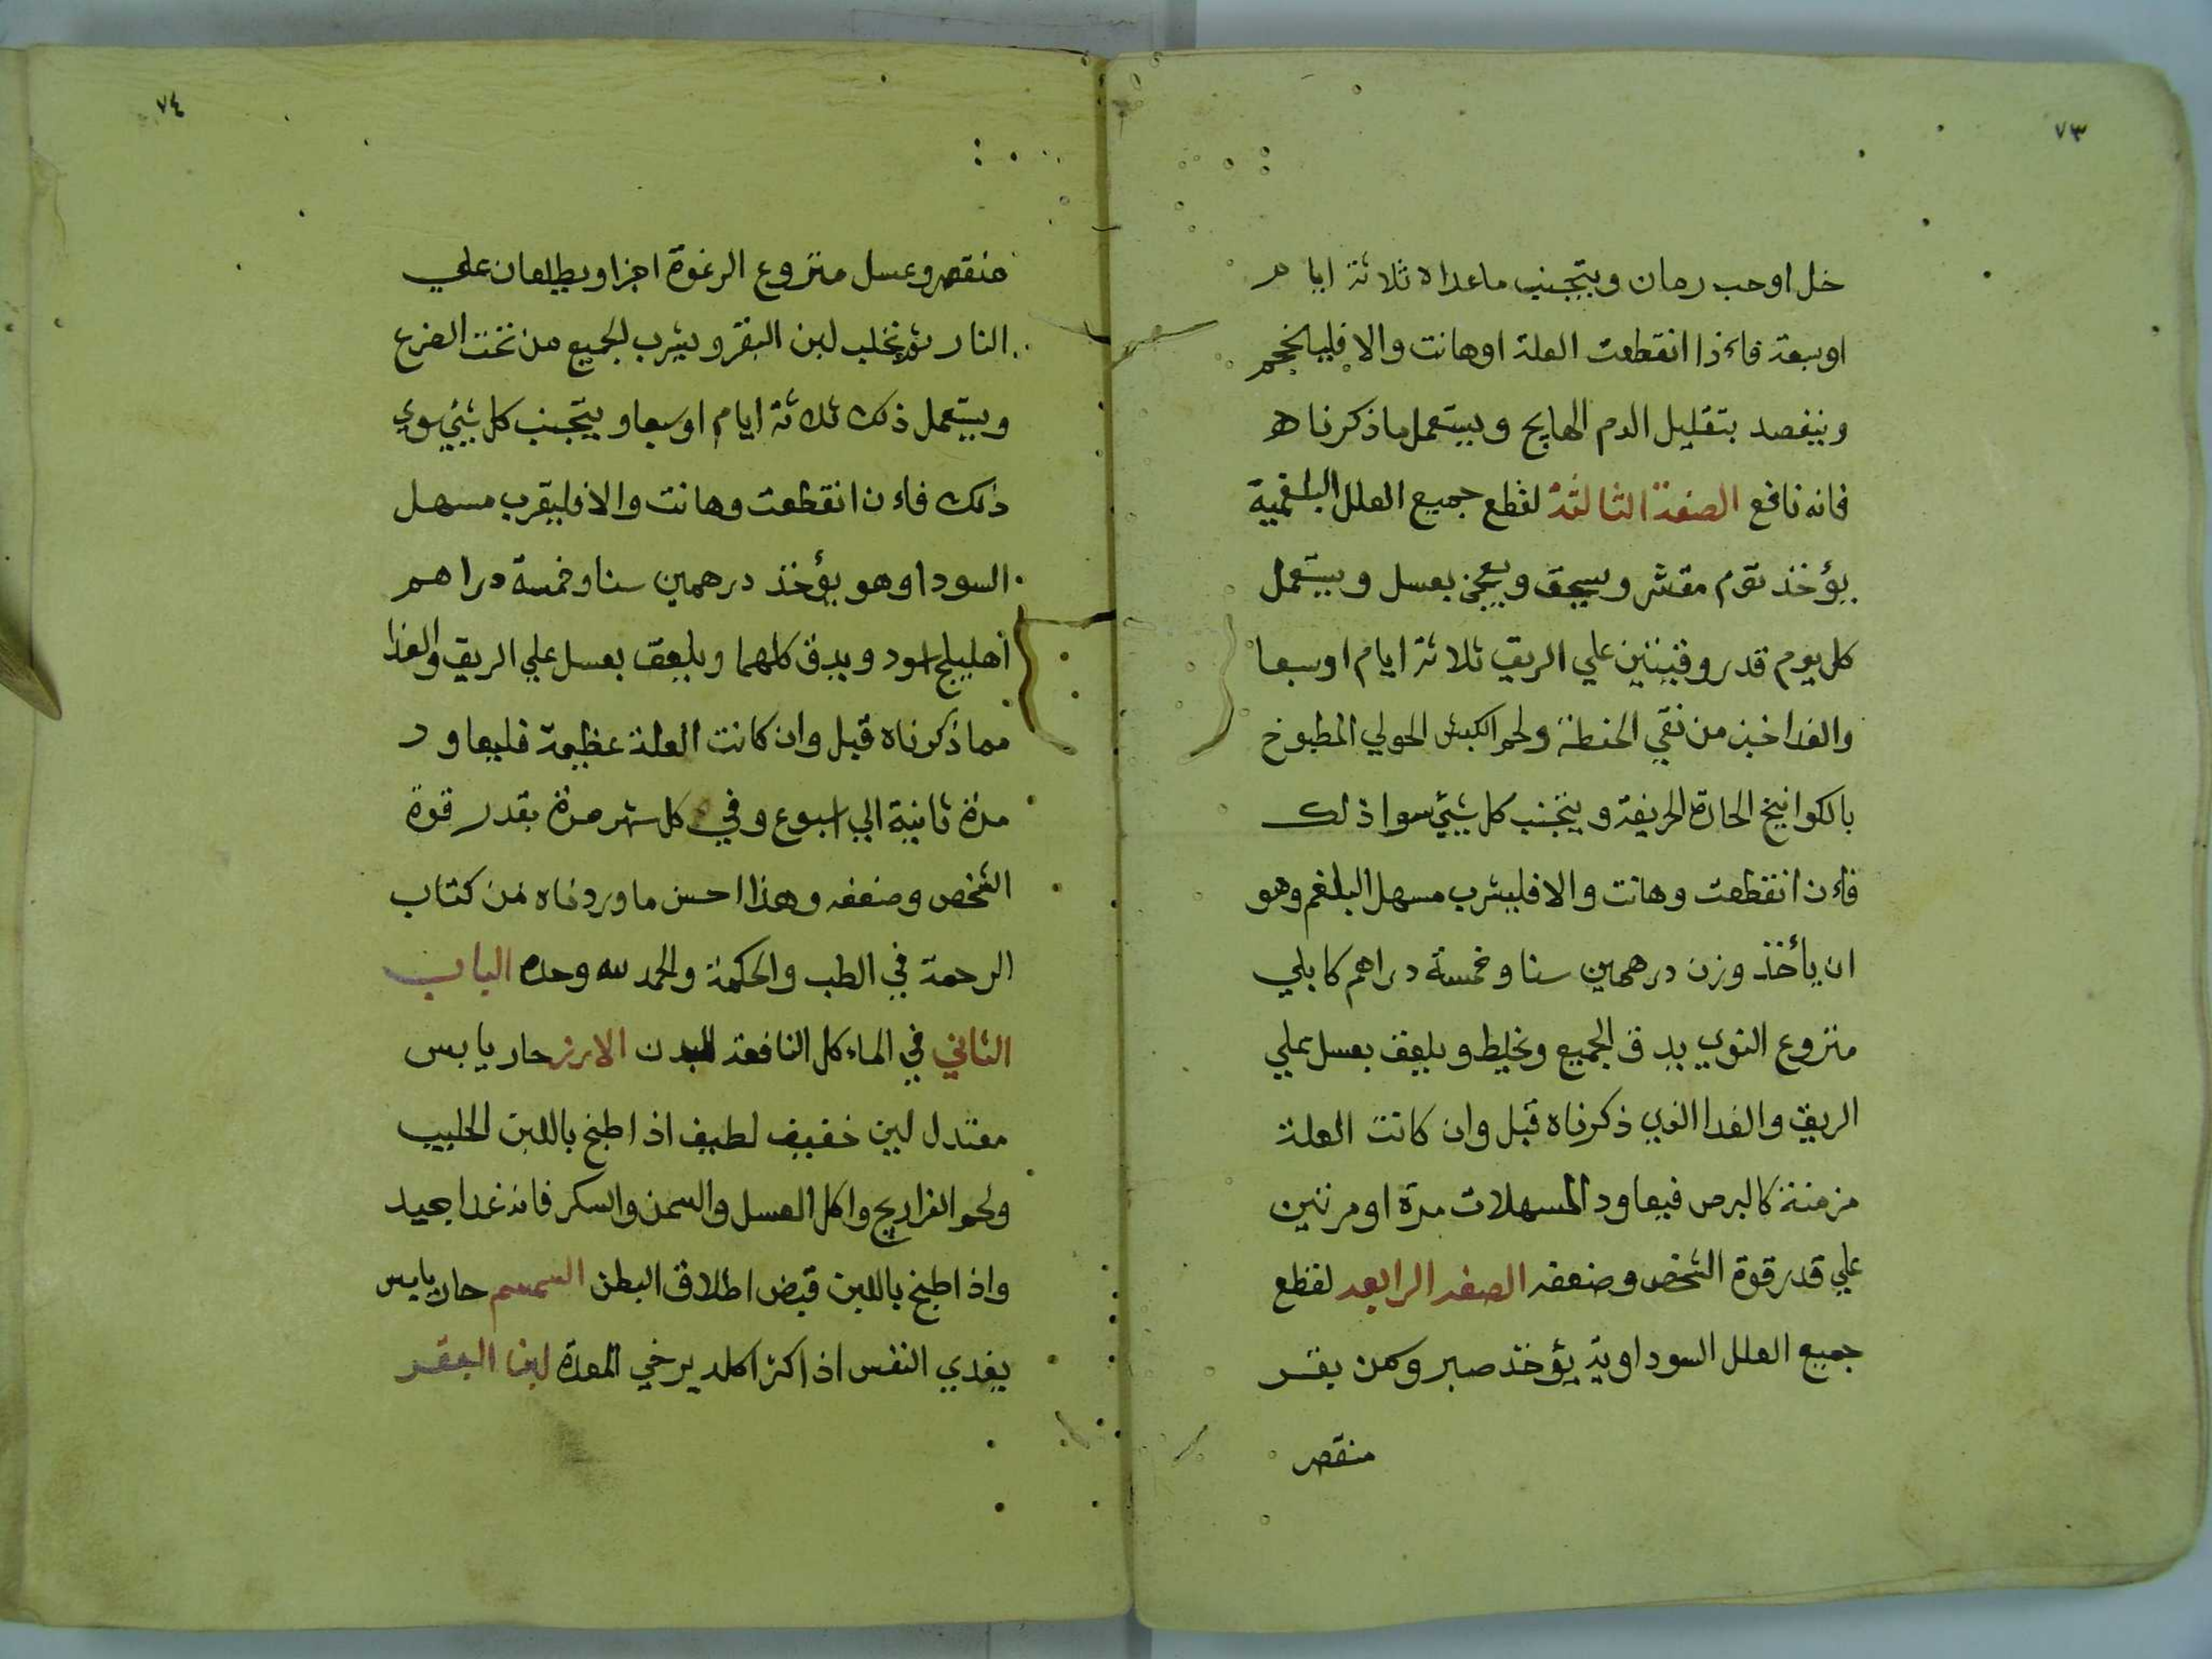 ٧٣
خل اوحب رمان ويتجنب ماعداه ثلاثة ايام
اوسبعة فاءذا انقطعت العلة اوهانت والا فليحجم
وينفصد بتقليل الدم الهايج ويستعمل ماذكرناه
فانه نافع الصفة الثالثة لقطع جميع العلل البلغمية
يؤخذ ثوم مقشر ويسحق ويعجن بعسل ويستعمل
كل يوم قدر وقيتين علي الريق ثلاثة ايام اوسبعا
والغدا خبز من نقي الحنطة ولحم الكبش الحولي المطبوخ
بالكوانيخ الحارة الحريفة ويتجنب كل شيئ سوا ذلك
فاءن انقطعت وهانت والا فليشرب مسهل البلغم وهو
ان يأخذ وزن درهمين سنا وخمسة دراهم كابلي
منزوع النوي يدق الجميع ويخلط ويلعق بعسل علي
الريق والغدا الذي ذكرناه قبل وان كانت العلة
مزمنة كالبرص فيعاود المسهلات مرة او مرتين
علي قدر قوة الشخص وضعفه الصفه الرابعه لقطع
جميع العلل السوداوية يؤخذ صبر وسمن بقر
منقصر
٧٤
منقصر وعسل منزوع الرغوة اجزا ويطلعان علي
النار ثم يحلب لبن البقر ويشرب الجميع من تحت الضرع
ويستعمل ذلك ثلاثة ايام اوسبعا ويتجنب كل شيئ سوي
ذلك فاءن انقطعت وهانت والا فليقرب مسهل
السودا وهو يؤخذ درهمين سنا وخمسة دراهم
أهليلج اسود ويدق كلهما ويلعق بعسل علي الريق والغدا
مما ذكرناه قبل وان كانت العلة عظيمة فليعاود
مرة ثانية الي اسبوع وفي كل شهر مرة بقدر قوة
الشخص وضعفه وهذا احسن ما وردناه من كتاب
الرحمة في الطب والحكمة والحمد لله وحده الباب
الثاني في الماءكل النافعة للبدن الارز حار يابس
معتدل لين خفيف لطيف اذا طبخ باللبن الحليب
ولحم الفراريج واكل العسل والسمن والسكر فانه غدا جيد
واذا طبخ باللبن قبض اطلاق البطن السمسم حار يابس
يغدي النفس اذا كثر اكله يرخي المعدة لبن البقر